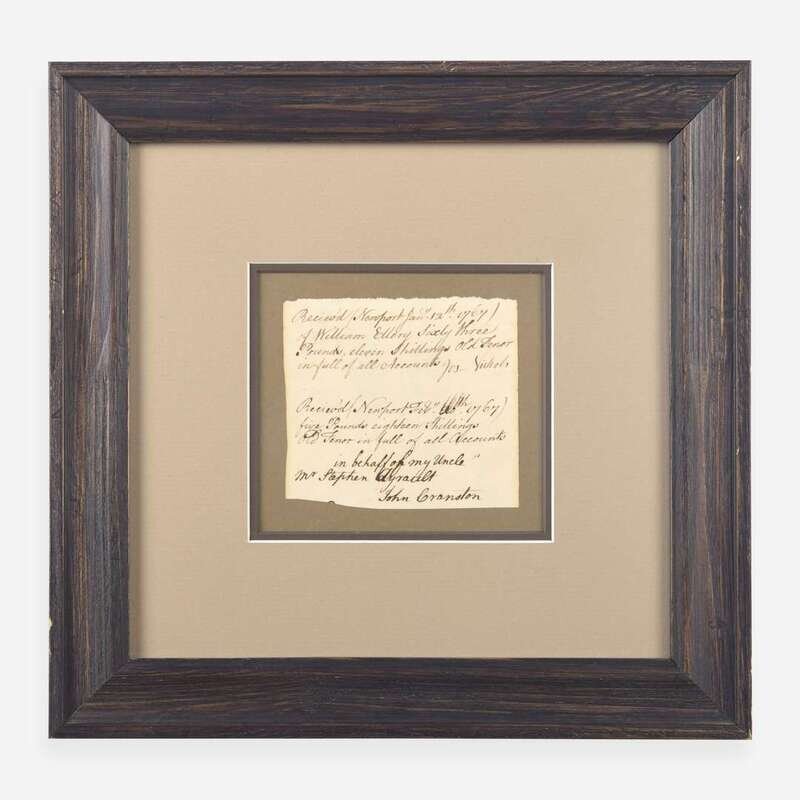 Reciev'd (Newport Jan.y 12th. 1767)
of William Ellery Sixty three
Pounds, eleven Shillings Old Tenor
in full of all Accounts Jos. Nichols
Reciev'd (Newport Feb.y 1767)
five Pounds eighteen Shillings
Old Tenor in full of all Accounts
in behalf of my Uncle
Mr Stephen Ayrault
John Cranston